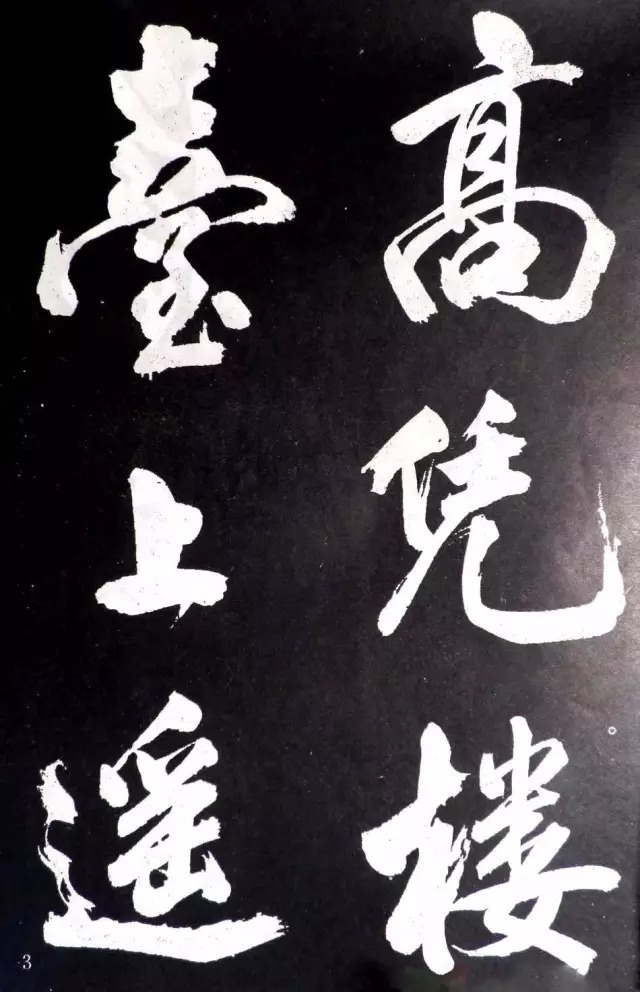 高凭樓
臺上遥
3